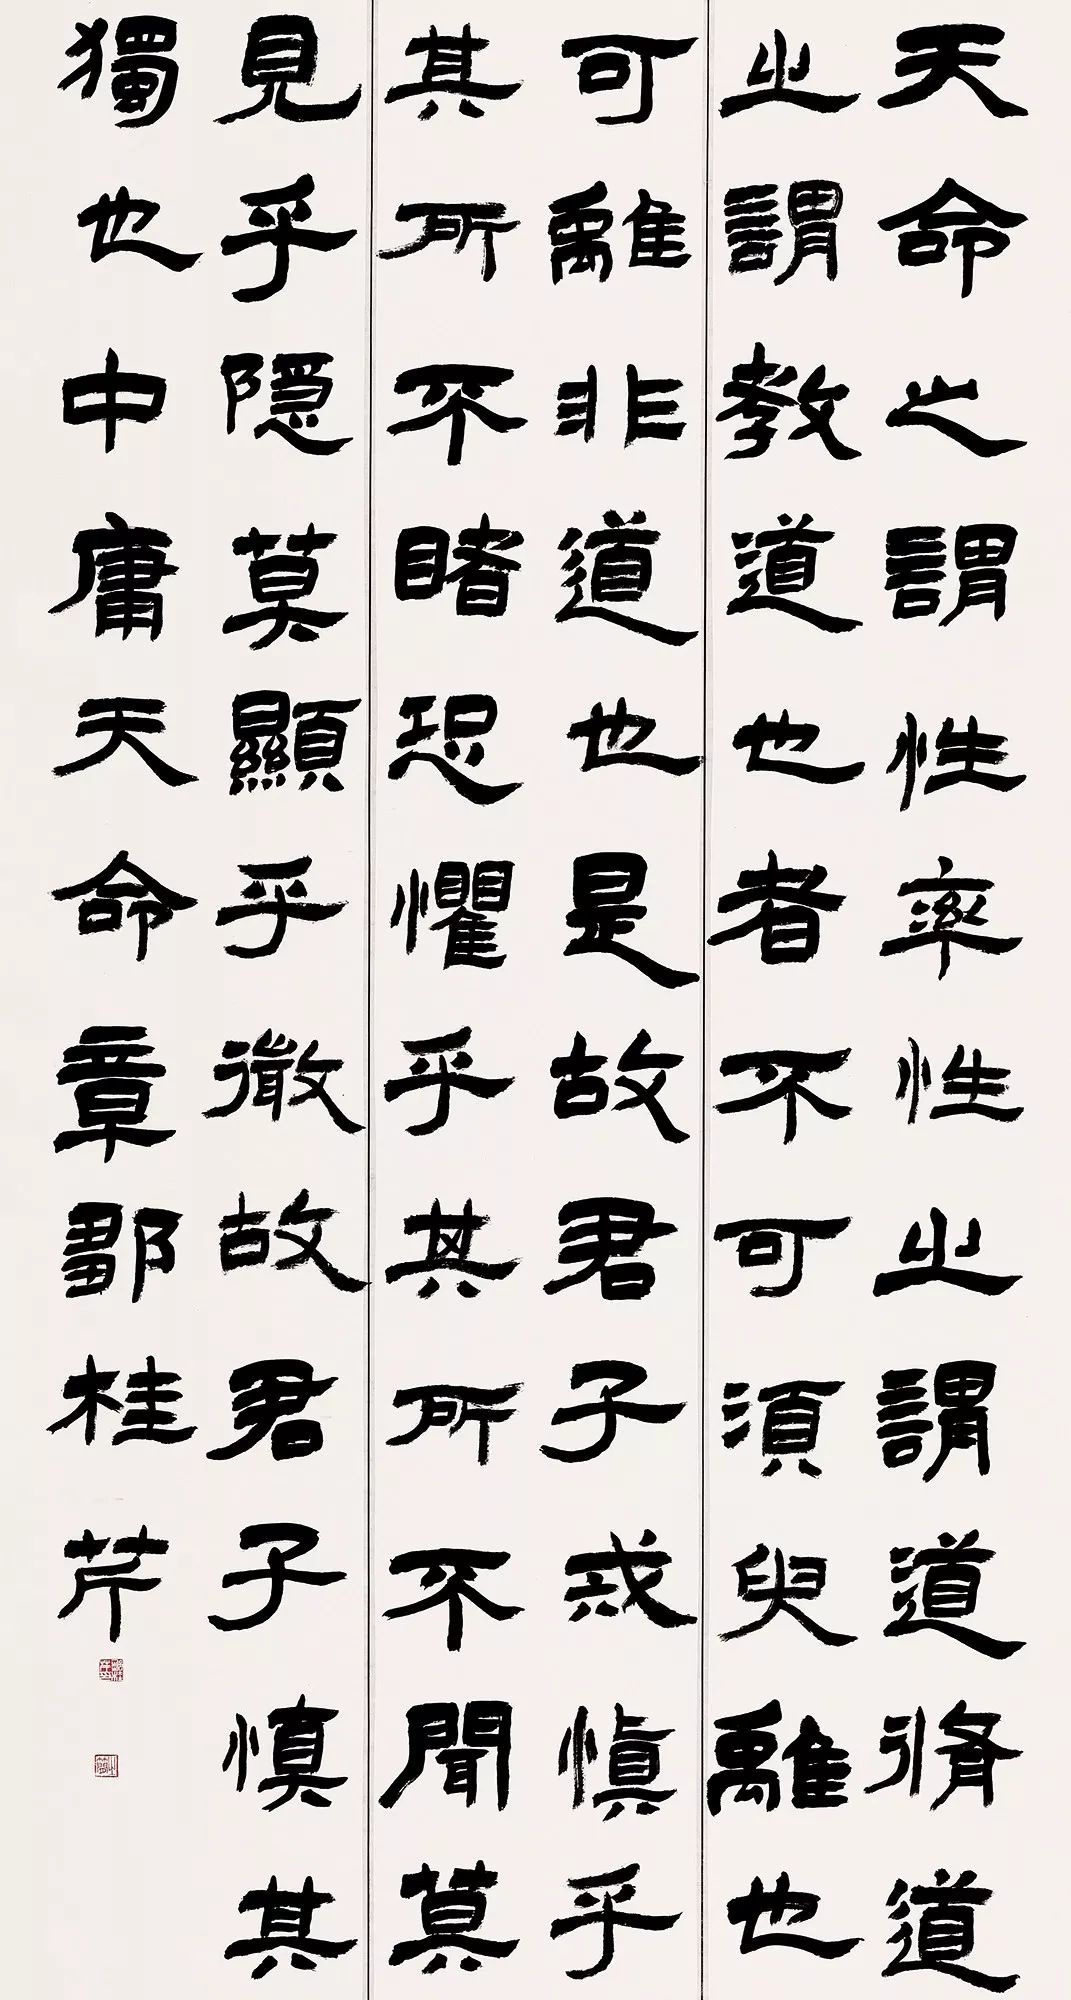 天命之謂性率性之謂道脩道
之謂教道也者不可須臾離也
可離非道也是故君子戒慎乎
其所不睹恐懼乎其所不聞莫
見乎隱莫顯乎微故君子慎其
獨也中庸天命章鄒桂芹